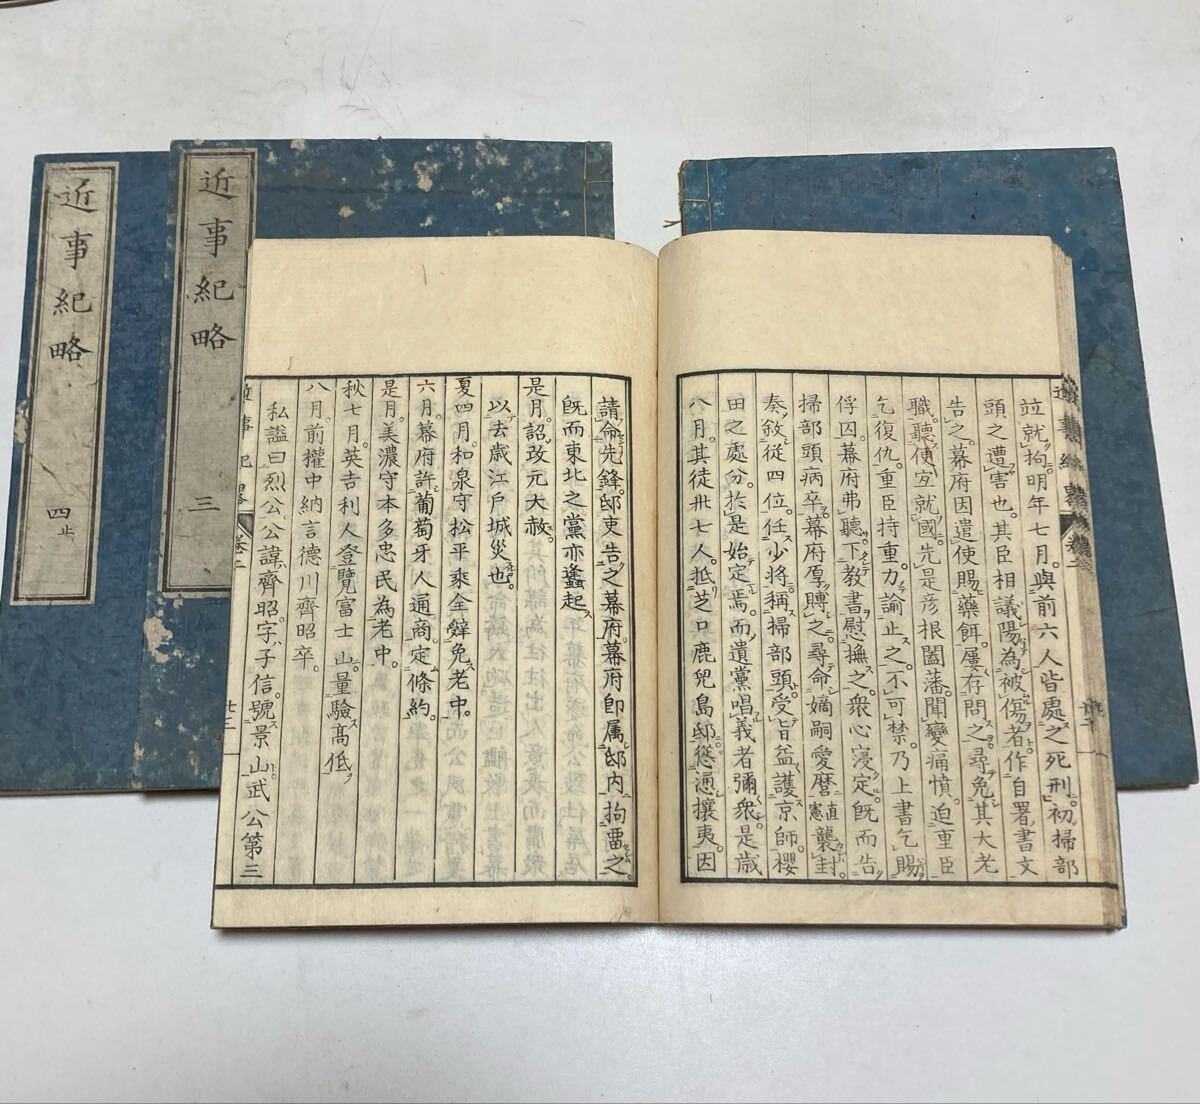 近事紀略
四止
近事紀略
三
竝就拘明年七月。與前六人皆處之死刑。初掃部
頭之遭害也。其臣相議陽為被傷者作自署書文
告之幕府因遣使賜藥餌。屢存問之。尋免其大老
職。聽使宐就國。先是彦根闔藩。聞變痛憤。迫重臣
乞復仇。重臣持重。力諭止之。不可禁。乃上書乞賜
俘囚。幕府弗聽。下教書慰撫之。衆心寖定。既而告
掃部頭病卒。幕府厚賻之。尋命嫡嗣愛麿直憲襲封。
奏敘從四位。任少將。稱掃部頭。受旨益護京師。櫻
田之處分。於是始定焉。而遺黨唱義者彌衆。是歳
八月。其徒卅七人。抵芝口鹿兒島邸。慫慂攘夷。因
請命先鋒。邸吏告之幕府。幕府卽属邸内拘畱之。
既而東北之黨亦蠭起。
是月。詔改元大赦。
以去歳江戸城災也。
夏四月。和泉守松平乘全辭免老中。
六月。幕府許葡萄牙人通商。定條約。
是月。美濃守本多忠民為老中。
秋七月。英吉利人登覽富士山。量驗髙低。
八月。前權中納言德川齊昭卒。
私謚曰烈公。公諱齊昭。字子信。號景山。武公第三
近事紀略
卷二
廿三